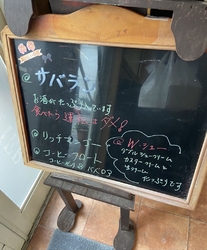 サバラン
お酒がたっぷり入っています
食べたら運転はダメ!
Wシュー
ダブルシュークリーム
カスタークリームと
生クリーム
たっぷりです
リッチマンゴー
コーヒーフロート